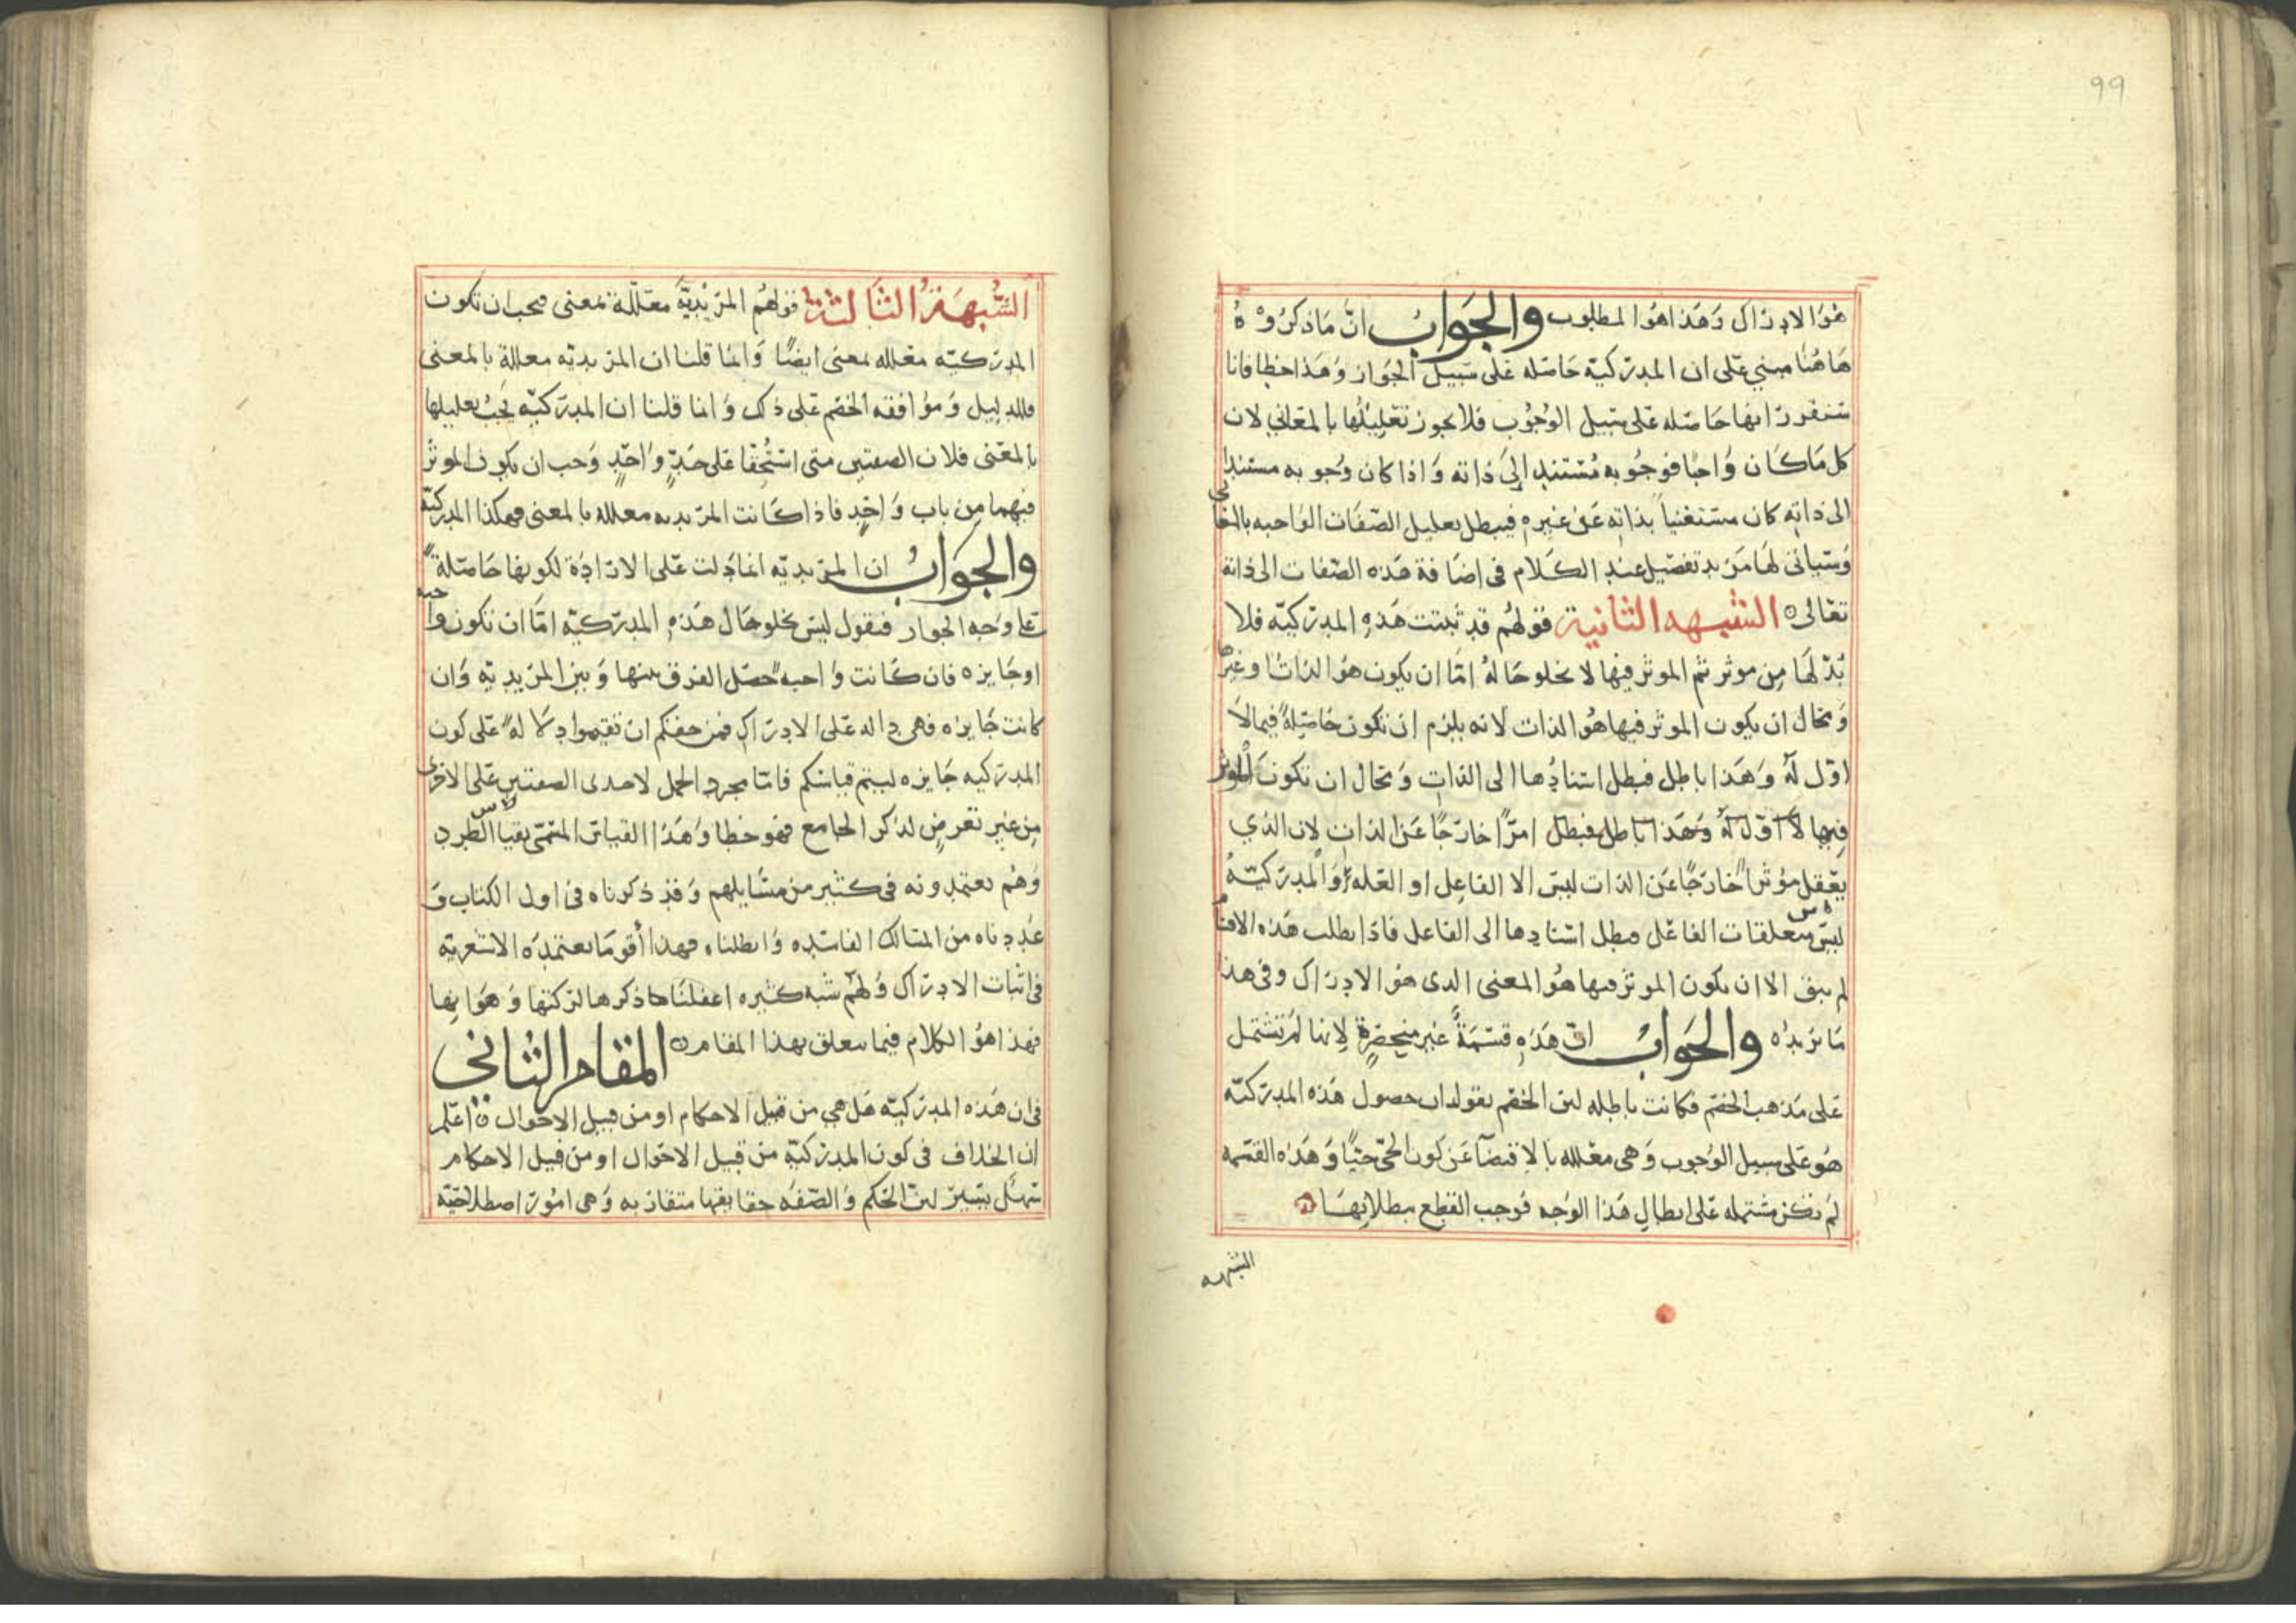 99
هو الادراك وهذا هو المطلوب والجواب ان ما ذكروه
هاهنا مبني على ان المدركية حاصله على سبيل الجواز وهذا خطا فانا
سنقرر انها حاصله على سبيل الوجوب فلا يجوز تعليلها بالمعاني لان
كل ما كان واجبا فوجوبه مستند الى ذاته واذا كان وجوبه مستندا
الى ذاته كان مستغنيا بذاته عن غيره فيبطل تعليل الصفات الواجبه بالمعاني
وسياتي لها مزيد تفصيل عند الكلام في اضافة هذه الصفات الى ذاته
تعالى ه الشبهه الثانية قولهم قد ثبتت هذه المدركيه فلا
بد لها من موثر ثم الموثر فيها لا يخلو حاله اما ان يكون هو الذات او غيرها
ومحال ان يكون الموثر فيها هو الذات لانه يلزم ان تكون حاصلة فيما لا
اول له وهذا باطل فبطل اسنادها الى الذات ومحال ان تكون الموثر
فيها لا اول له وهذا باطل فبطل امرا خارجا عن الذات لان الذي
يعقل مؤثرا خارجا عن الذات ليس الا الفاعل او العله والمدركية
ليس متعلقات الفاعل فبطل اسنادها الى الفاعل فاذا بطلت هذه الاقسام
لم يبق الا ان يكون الموثر فيها هو المعنى الذى هو الادراك وفي هذا
ما نريده والجواب ان هذه قسمة غير منحصرة لانها لم تشتمل
على مذهب الخصم فكانت باطله لان الخصم يقول ان حصول هذه المدركيه
هو على سبيل الوجوب وهي معلله بالاقتضا عن كون الحي حيا وهذه القسمه
لم تكن مشتمله على ابطال هذا الوجه فوجب القطع ببطلانها ه
الشبهه
الشبهة الثالثة قولهم المريدية معللة بمعنى فيجب ان تكون
المدركيه معلله بمعنى ايضا وانما قلنا ان المريديه معللة بالمعنى
فللدليل وموافقه الخصم على ذلك وانما قلنا ان المدركيه يجب تعليلها
بالمعنى فلان الصفتين متى استحقا على حد واحد وجب ان يكون الموثر
فيهما من باب واحد فاذا كانت المريديه معلله بالمعنى فهكذا المدركيه
والجواب ان المريديه انما دلت على الارادة لكونها حاصلة
على وجه الجواز فنقول ليس يخلو حال هذه المدركيه اما ان تكون واجبه
او جايزه فان كانت واجبه حصل الفرق بينها وبين المريديه وان
كانت جايزه فهي داله على الادراك فمن حقكم ان تقيموا دلاله على كون
المدركيه جايزه ليتم قياسكم فاما مجرد الحمل لاحدى الصفتين على الاخرى
من غير تعرض لذكر الجامع فهو خطا وهذا القياس المسمى بقياس الطرد
وهم يعتمدونه في كثير من مسايلهم وقد ذكرناه في اول الكتاب و
عددناه من المسالك الفاسده وابطلناه فهذا أقوى ما يعتمده الاشعريه
في اثبات الادراك ولهم شبه كثيره اغفلنا ذكرها لركتها وهوانها
فهذا هو الكلام فيما يتعلق بهذا المقام ه المقام الثاني
في ان هذه المدركيه هل هي من قبيل الاحكام او من قبيل الاحوال ه اعلم
ان الخلاف في كون المدركيه من قبيل الاحوال او من قبيل الاحكام
سهل يسير لان الحكم والصفه حقايقها متقاربه وهي امور اصطلاحيه